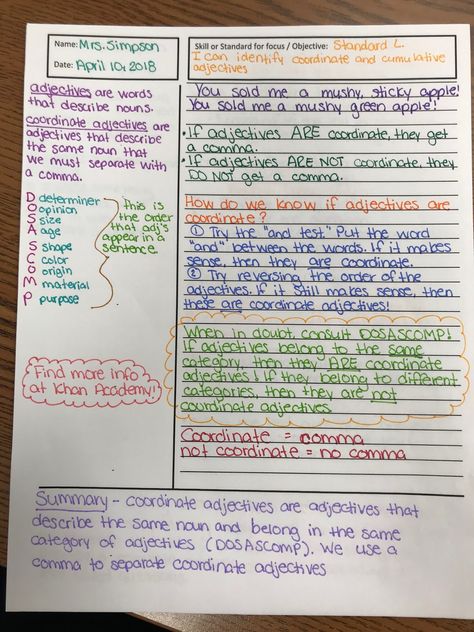 Name: Mrs. Simpson
Date: April 10, 2018
Skill or Standard for focus / Objective: Standard L.
I can identify coordinate and cumulative
adjectives
adjectives are words
that describe nouns.
coordinate adjectives are
adjectives that describe
the same noun that
we must separate with
a comma.
D determiner
O opinion
S size
A age
S shape
C color
O origin
M material
P purpose
This is
the order
that adj's
appear in a
sentence.
Find more info
at Khan Academy!
You sold me a mushy, sticky apple!
You sold me a mushy green apple!
• If adjectives ARE coordinate, they get
a comma.
• If adjectives ARE NOT coordinate, they
DO NOT get a comma.
How do we know if adjectives are
coordinate?
① Try the "and test." Put the word
"and" between the words. If it makes
sense, then they are coordinate.
② Try reversing the order of the
adjectives. If it still makes sense, then
these are coordinate adjectives!
When in doubt, consult DOSASCOMP!
If adjectives belong to the same
category, then they ARE coordinate
adjectives! If they belong to different
categories, then they are not
coordinate adjectives.
Coordinate = comma
not coordinate = no comma
Summary - coordinate adjectives are adjectives that
describe the same noun and belong in the same
category of adjectives (DOSASCOMP). We use a
comma to separate coordinate adjectives